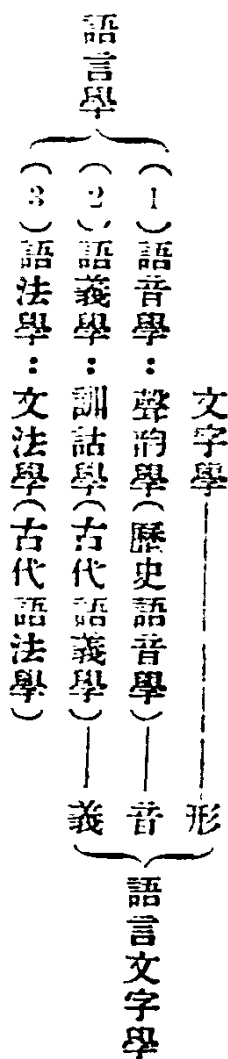 文字學——形
語言學
（1）語音學：聲韵學（歷史語音學）——音
（2）語義學：訓詁學（古代語義學）——義
（3）語法學：文法學（古代語法學）
語言文字學